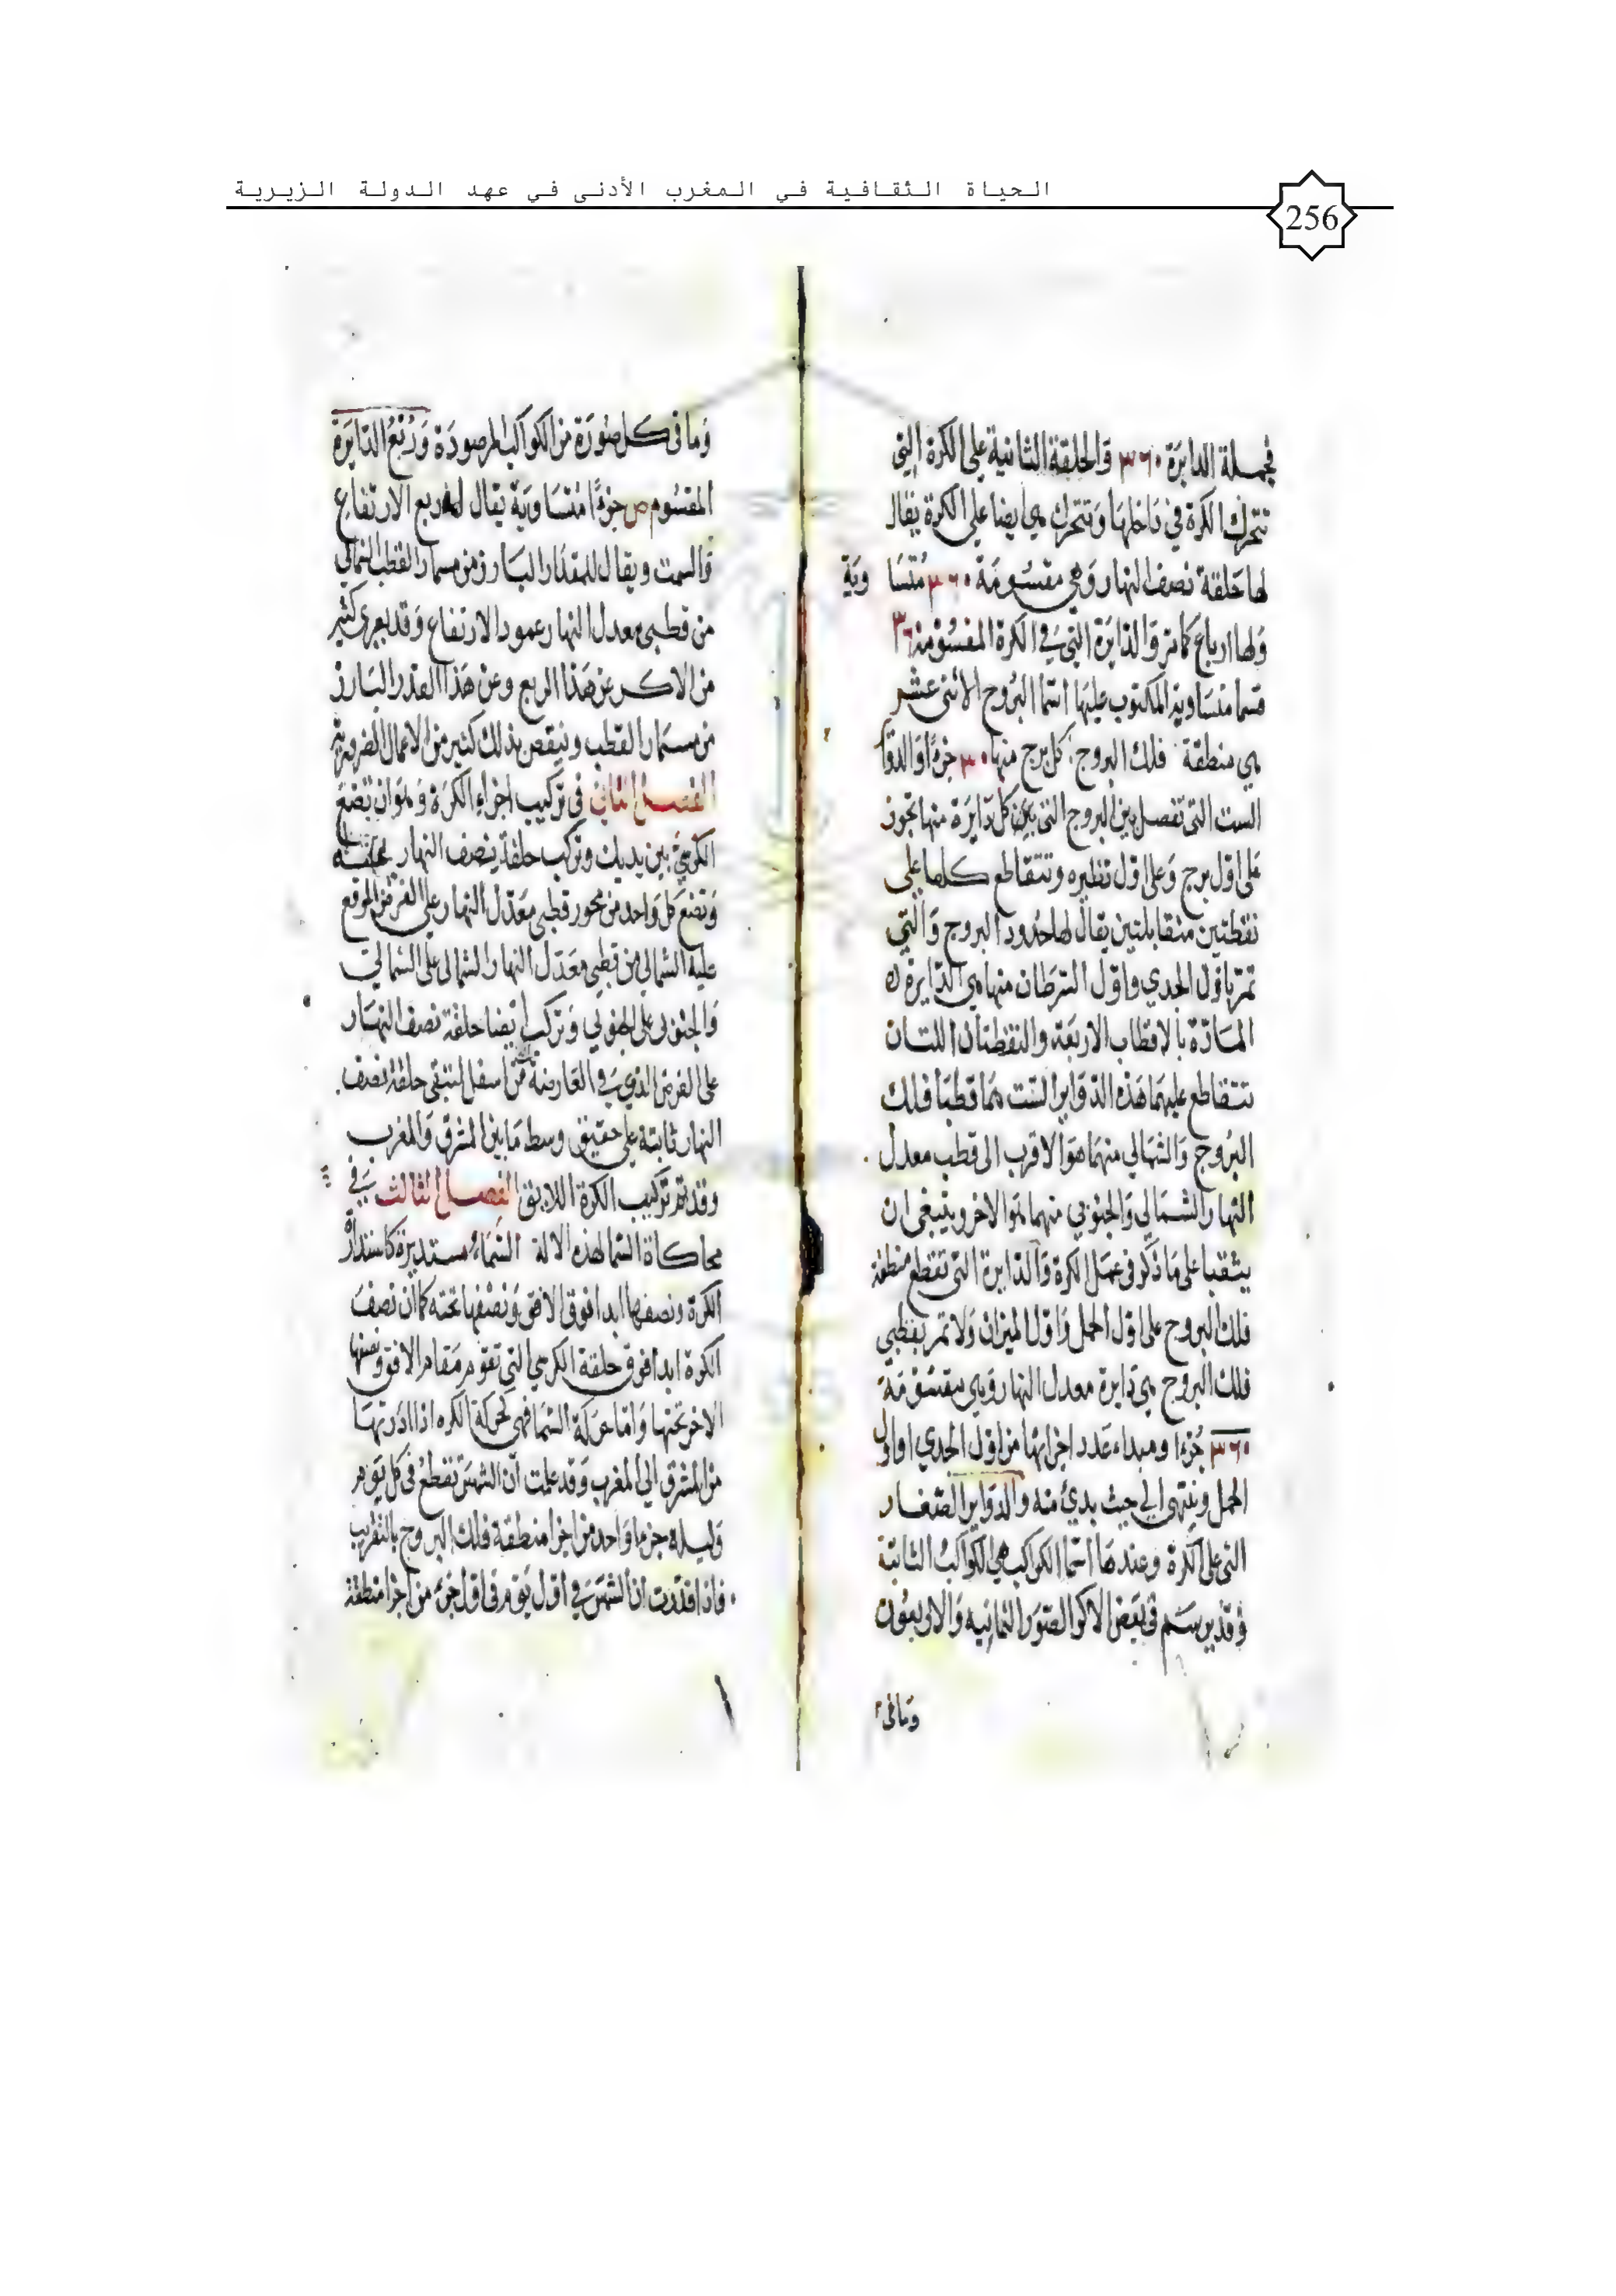 الحياة الثقافية في المغرب الأدنى في عهد الدولة الزيرية
256
فجملة الدايرة ٣٦٠ والحلقة الثانية على الكرة التي
تتحرك الكرة في داخلها وتتحرك هي ايضا على الكرة يقال
لها حلقة نصف النهار وهي مقسومة ٣٦٠ متساوية
ولها ارباع كما مر والدايرة التي في الكرة المقسومة ٣٦٠
قسما متساوية المكتوب عليها اسما البروج الاثنى عشر
هي منطقة فلك البروج كل برج منها ٣٠ جزءا والدوا
الست التى تفصل بين البروج التى بين كل دايرة منها تجوز
على اول برج وعلى اول نظيره وتتقاطع كلها على
نقطتين متقابلتين يقال لها حدود البروج والتي
تمر باول الجدي واول السرطان منها هي الدايرة
المارة بالاقطاب الاربعة والنقطتان اللتان
تتقاطع عليهما هذه الدواير الست هما قطبا فلك
البروج والشمالي منهما هو الاقرب الى قطب معدل
النهار الشمالي والجنوبي منهما هو الاخر وينبغى ان
يثقبا على ما ذكر في عمل الكرة والدايرة التى تقطع منطقة
فلك البروج على اول الحمل واول الميزان ولا تمر بقطبي
فلك البروج هي دايرة معدل النهار وهي مقسومة
٣٦٠ جزءا ومبداء عدد اجزائها من اول الجدي او اول
الحمل وينتهى الى حيث بدئ منه والدواير الصغار
التى على الكرة وعندها اسما الكواكب هي الكواكب الثابتة
وقد يرسم فى بعض الاكر الصور الثمانية والاربعون
ومافى
وما فى كل صورة من الكواكب المرصودة وربع الدايرة
المقسوم ص جزءا متساوية يقال له ربع الارتفاع
والسمت ويقال للمقدار البارز من مسمار القطب الشمالي
من قطبى معدل النهار عمود الارتفاع وقد يعرى كثير
من الاكر عن هذا الربع وعن هذا القدر البارز
من مسمار القطب وينقص بذلك كثير من الاعمال الضرورية
الفصل الثاني فى تركيب اجزاء الكرة وهو ان تضع
الكرسي بين يديك وتركب حلقة نصف النهار
وتضع كل واحد من محور قطبى معدل النهار على الفرض الموقع
عليه الشمالي من قطبى معدل النهار الشمالى على الشمالي
والجنوبى على الجنوبي وتركب ايضا حلقة نصف النهار
على الفرض الذي في العارضة من اسفل لتبقى حلقة نصف
النهار ثابتة على حقيق وسط ما بين المشرق والمغرب
وقد تم تركيب الكرة اللايق الفصل الثالث في
محاكاة السما لهذه الالة السماء مستديرة كاستدارة
الكرة ونصفها ابدا فوق الافق ونصفها تحته كما ان نصف
الكرة ابدا فوق حلقة الكرسي التي تقوم مقام الافق ونصفها
الاخر تحتها واما حركة السما فهي كحركة الكرة اذا ادرتها
من المشرق الى المغرب وقد علمت ان الشمس تقطع فى كل يوم
وليلة جزءا واحد من اجزا منطقة فلك البروج بالتقريب
فاذا قدرت ان الشمس في اول يوم في اول جزء من اجزا منطقة